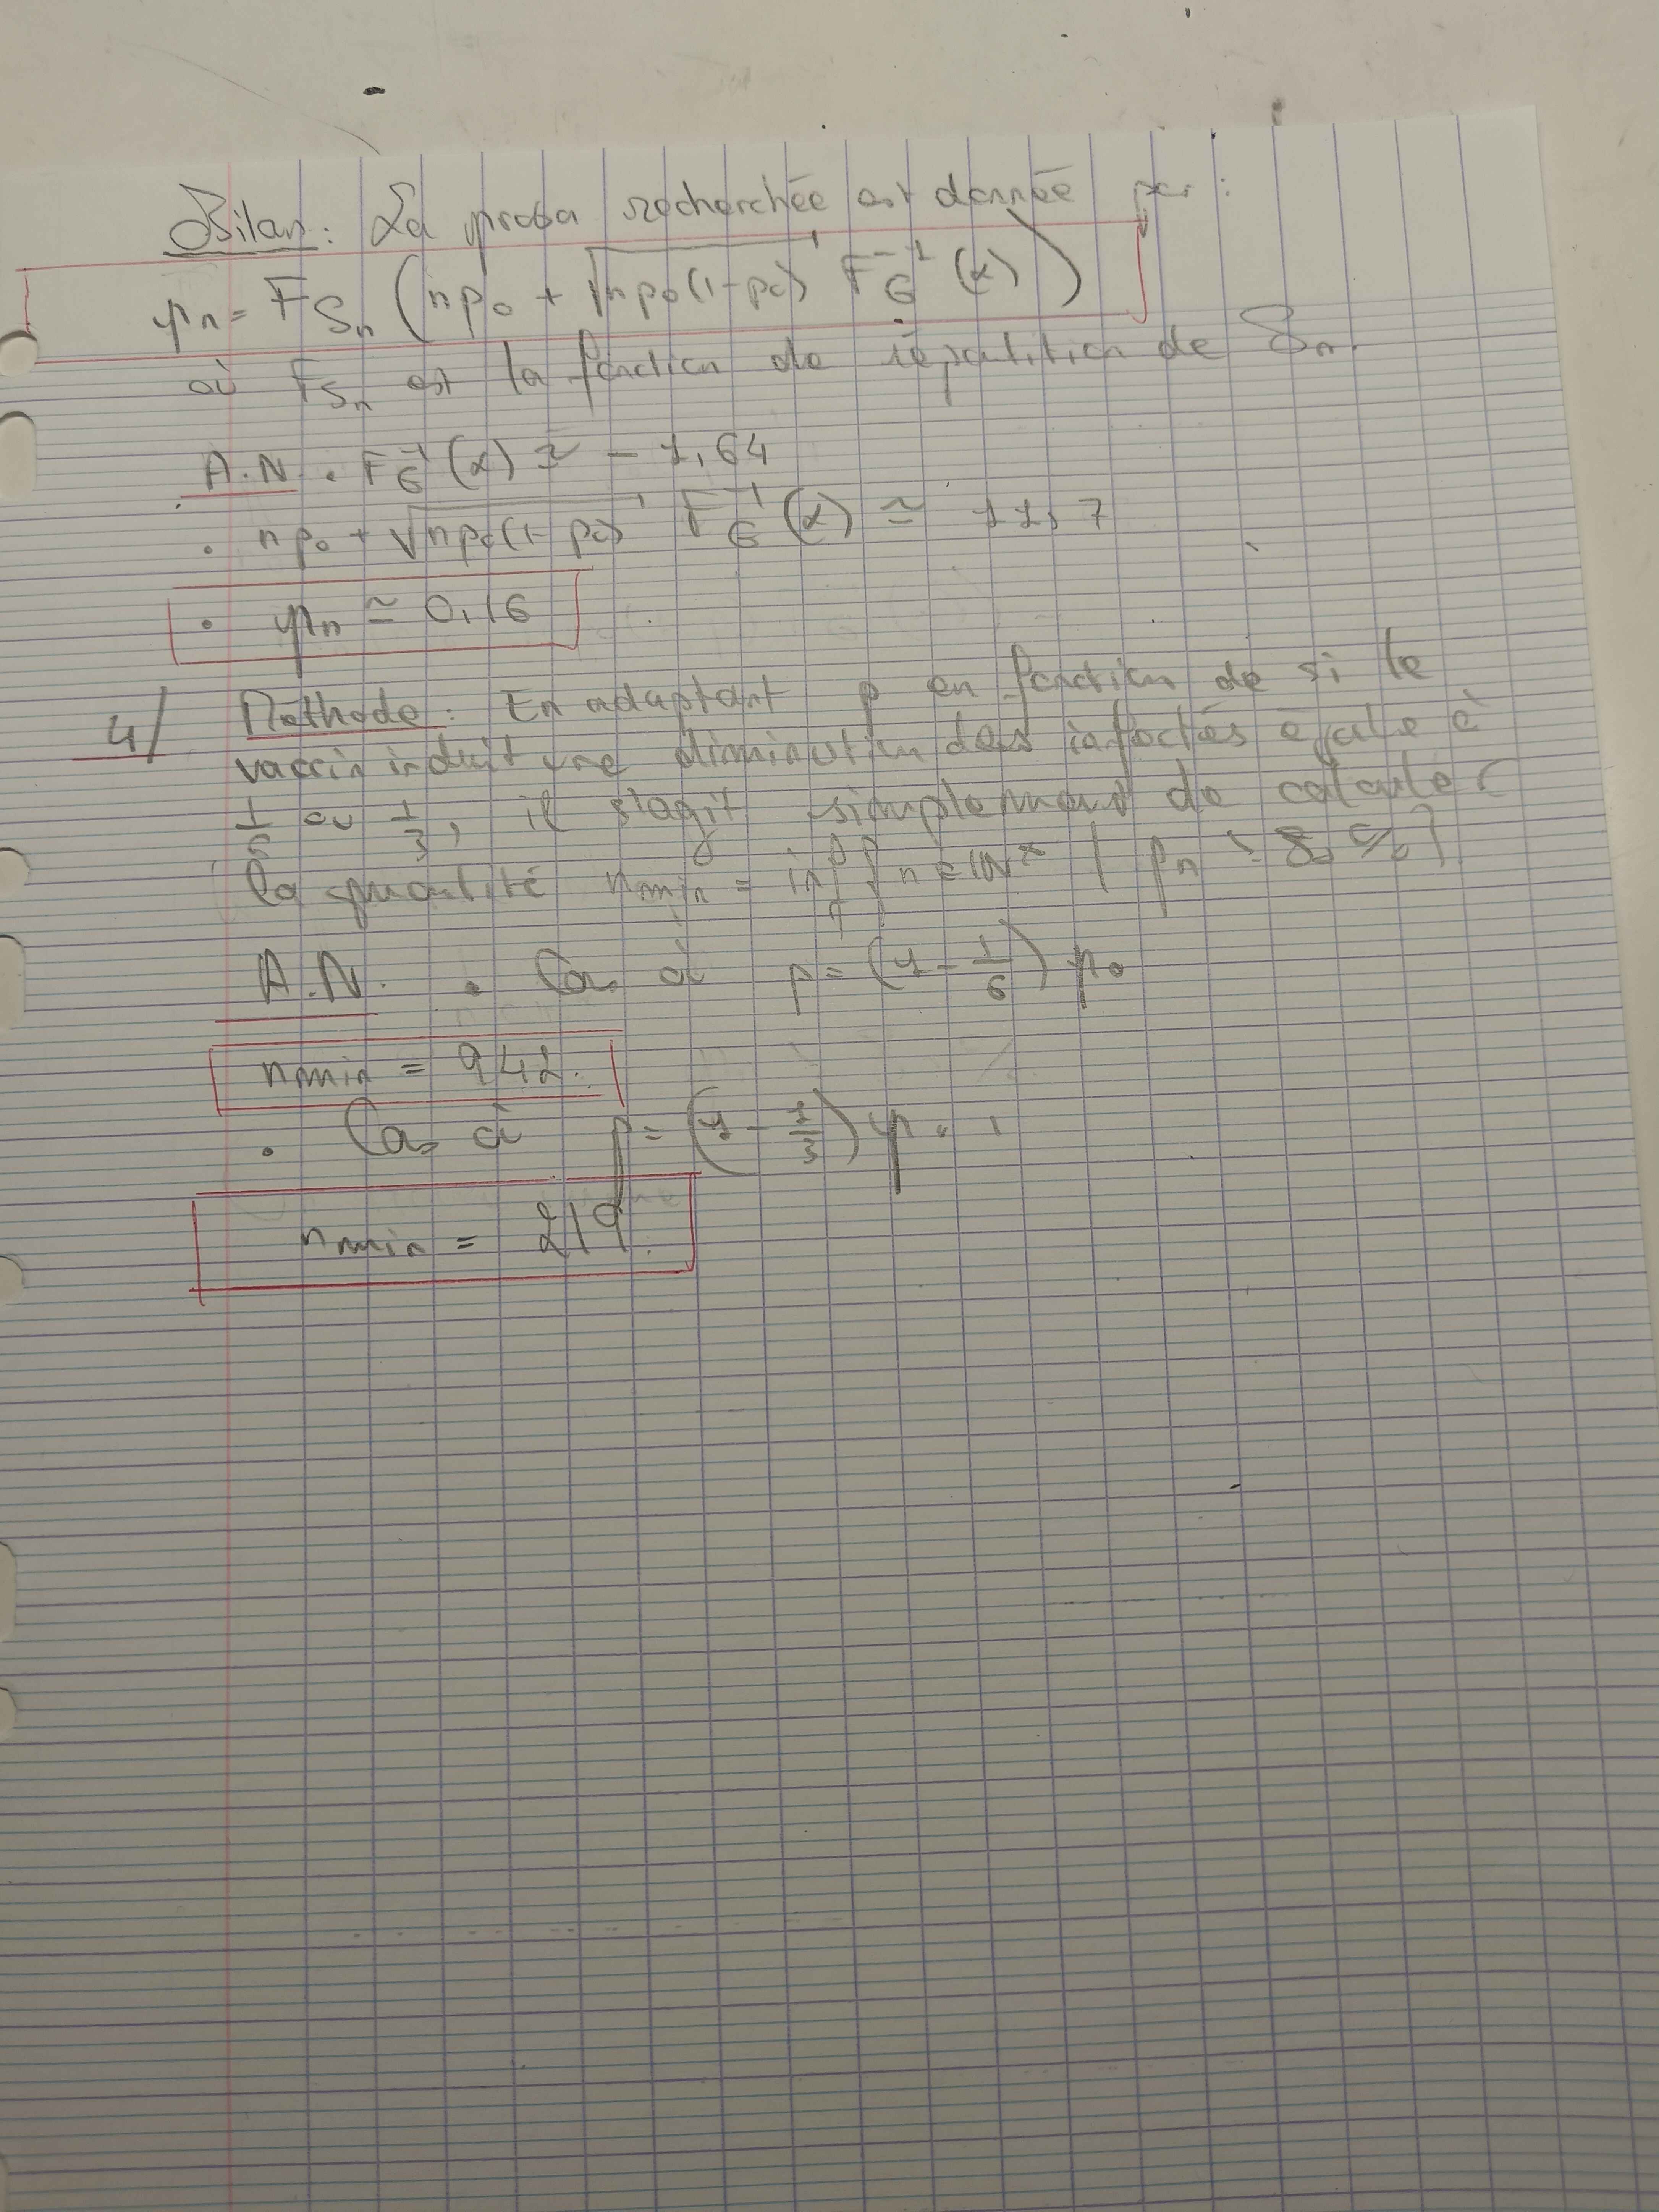 Bilan: La proba recherchée est donnée par:
pn = F_Sn (np₀ + √(np₀(1-p₀)) F_G⁻¹(α))
où F_Sn est la fonction de répartition de Sn.
A.N. • F_G⁻¹(α) ≃ -1,64
• np₀ + √(np₀(1-p₀)) F_G⁻¹(α) ≃ 11,7
• pn ≃ 0,16
4/ Méthode: En adaptant p en fonction de si le
vaccin induit une diminution des infectés égale à
1/6 ou 1/3, il s'agit simplement de calculer
la quantité nmin = inf { n ∈ ℕ* | pn ≥ 80 % }
A.N. • Cas où p = (1 - 1/6) p₀
nmin = 942.
• Cas où p = (1 - 1/3) p₀
nmin = 219.